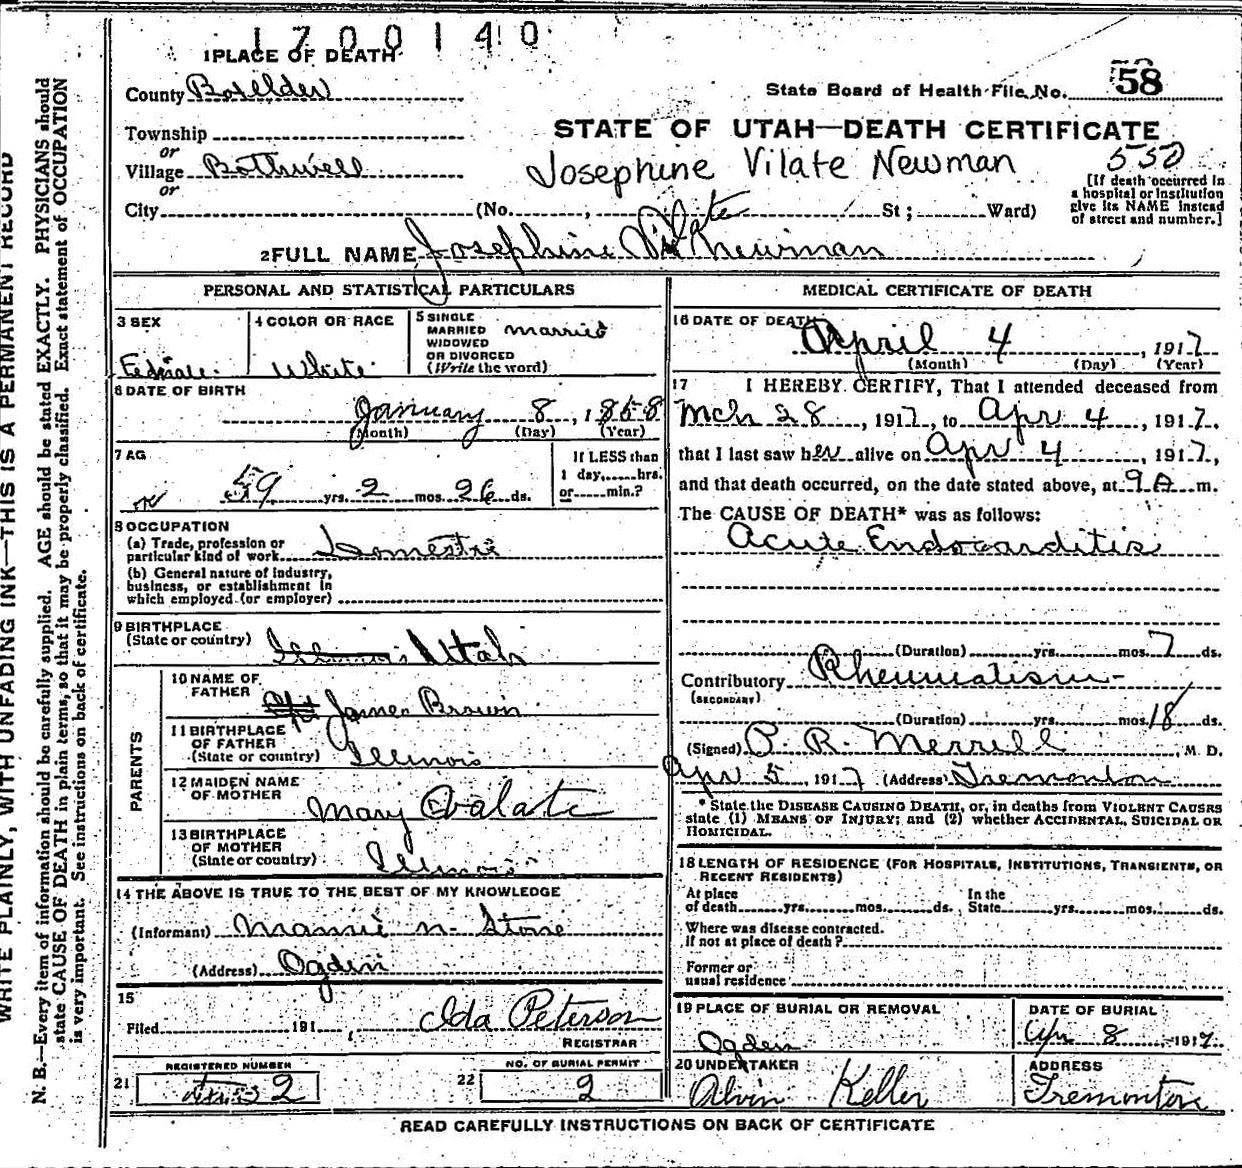 1700140
1 PLACE OF DEATH
County Boxelder
State Board of Health File No. 58
Township
or
Village Bothwell
or
City (No. , St ; Ward)
STATE OF UTAH—DEATH CERTIFICATE
Josephine Vilate Newman 550
[If death occurred in
a hospital or institution
give its NAME instead
of street and number.]
2 FULL NAME Josephine Vilate Newman
PERSONAL AND STATISTICAL PARTICULARS
3 SEX
Female
4 COLOR OR RACE
White
5 SINGLE
MARRIED
WIDOWED
OR DIVORCED
(Write the word)
married
6 DATE OF BIRTH
January 8, 1858
(Month) (Day) (Year)
7 AG
59 yrs. 2 mos. 26 ds.
If LESS than
1 day, hrs.
or min.?
8 OCCUPATION
(a) Trade, profession or
particular kind of work Domestic
(b) General nature of industry,
business, or establishment in
which employed (or employer)
9 BIRTHPLACE
(State or country) Illinois Utah
10 NAME OF
FATHER James Brown
11 BIRTHPLACE
OF FATHER
(State or country) Illinois
12 MAIDEN NAME
OF MOTHER Mary
13 BIRTHPLACE
OF MOTHER
(State or country) Illinois
PARENTS
14 THE ABOVE IS TRUE TO THE BEST OF MY KNOWLEDGE
(Informant) Mannie N. Stone
(Address) Ogden
15
Filed 191 , Ida Peterson
REGISTRAR
REGISTERED NUMBER
21 2
NO. OF BURIAL PERMIT
22 2
MEDICAL CERTIFICATE OF DEATH
16 DATE OF DEATH
April 4, 1917
(Month) (Day) (Year)
17 I HEREBY CERTIFY, That I attended deceased from
Mch 28, 1917, to Apr 4, 1917,
that I last saw her alive on Apr 4, 1917,
and that death occurred, on the date stated above, at 9 A m.
The CAUSE OF DEATH* was as follows:
Acute Endocarditis
(Duration) yrs. mos. 7 ds.
Contributory Rheumatism
(SECONDARY)
(Duration) yrs. mos. 18 ds.
(Signed) P. R. Merrill, M. D.
Apr 5, 1917 (Address) Tremonton
* State the DISEASE CAUSING DEATH, or, in deaths from VIOLENT CAUSES
state (1) MEANS OF INJURY; and (2) whether ACCIDENTAL, SUICIDAL OR
HOMICIDAL.
18 LENGTH OF RESIDENCE (FOR HOSPITALS, INSTITUTIONS, TRANSIENTS, OR
RECENT RESIDENTS)
At place
of death yrs. mos. ds.
In the
State yrs. mos. ds.
Where was disease contracted.
if not at place of death?
Former or
usual residence
19 PLACE OF BURIAL OR REMOVAL
Ogden
DATE OF BURIAL
Apr 8 1917
20 UNDERTAKER
Alvin Keller
ADDRESS
Tremonton
READ CAREFULLY INSTRUCTIONS ON BACK OF CERTIFICATE
WRITE PLAINLY, WITH UNFADING INK—THIS IS A PERMANENT RECORD
N. B.—Every item of information should be carefully supplied. AGE should be stated EXACTLY. PHYSICIANS should
state CAUSE OF DEATH in plain terms, so that it may be properly classified. Exact statement of OCCUPATION
is very important. See instructions on back of certificate.